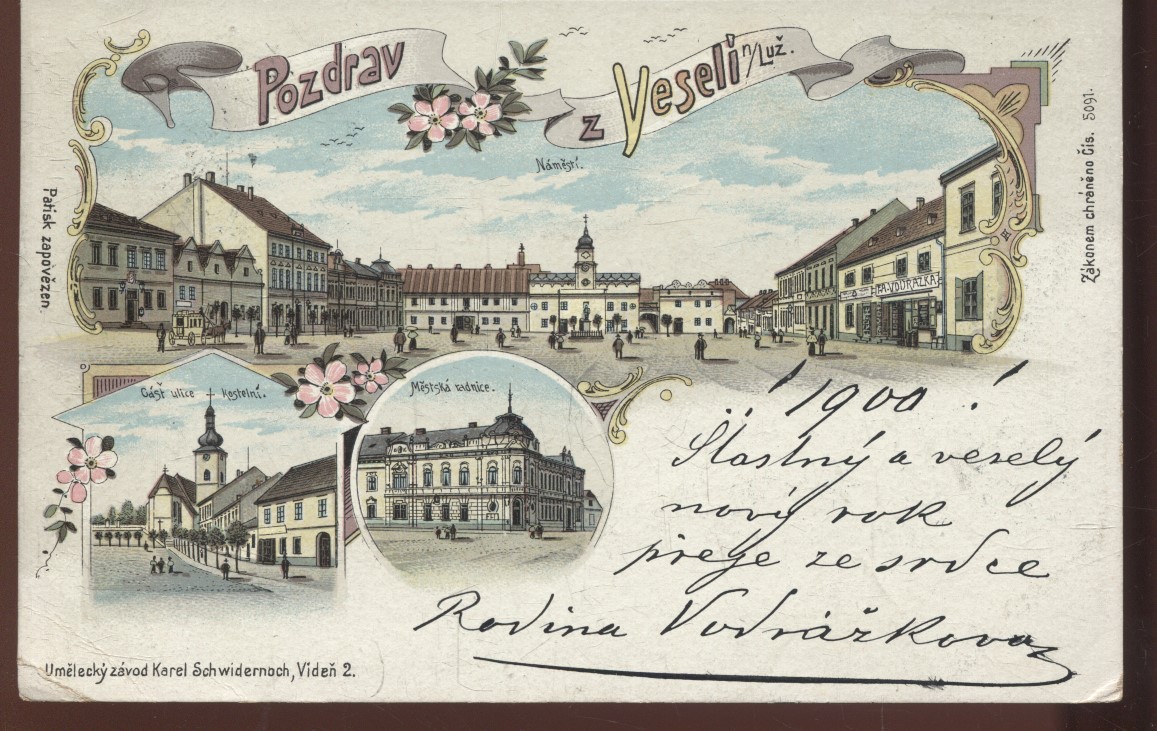 Pozdrav z Veselí n/Luž.
Náměstí.
FA. VODRÁŽKA
Patisk zapovězen.
Zákonem chráněno Čís. 5091.
Část ulice kostelní.
Městská radnice.
1900!
Šťastný a veselý
nový rok
přeje ze srdce
Rodina Vodrážkova
Umělecký závod Karel Schwidernoch, Vídeň 2.